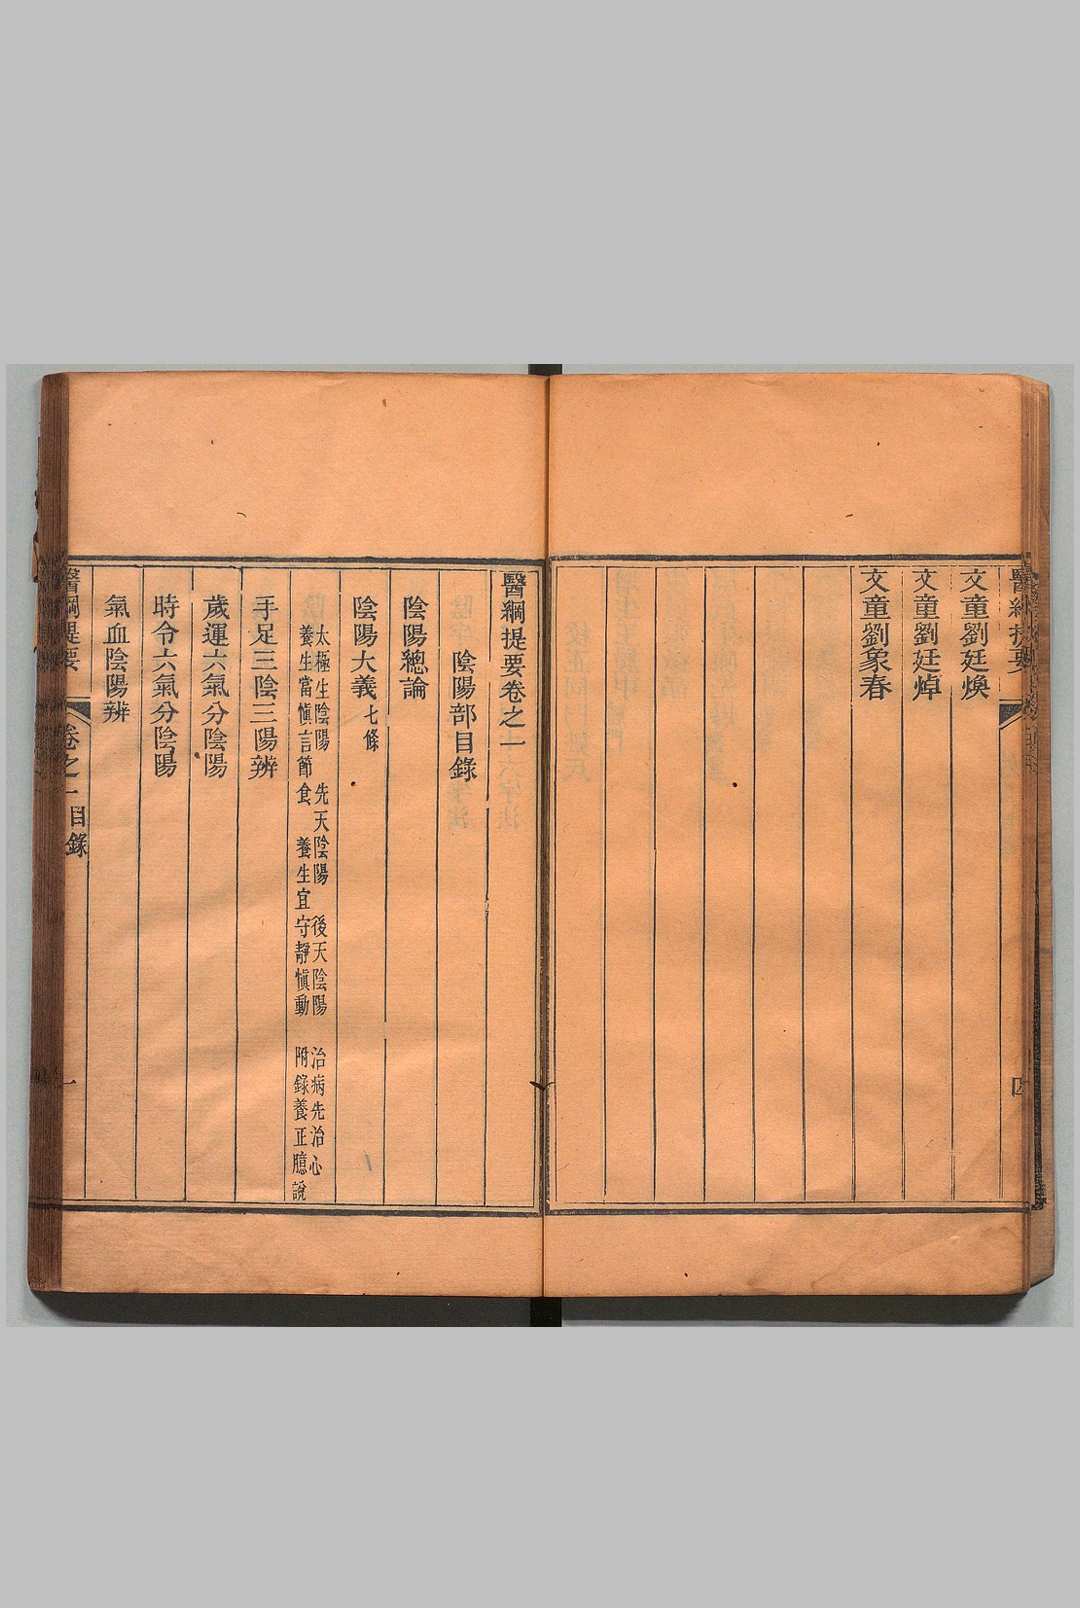 文童劉廷煥
文童劉廷焯
文童劉象春
醫綱提要卷之一
陰陽部目錄
陰陽總論
陰陽大義七條
太極生陰陽 先天陰陽 後天陰陽 治病先治心
養生當慎言節食 養生宜守靜慎動 附錄養正臆說
手足三陰三陽辨
歲運六氣分陰陽
時令六氣分陰陽
氣血陰陽辨
醫綱提要 卷之一 目錄 一